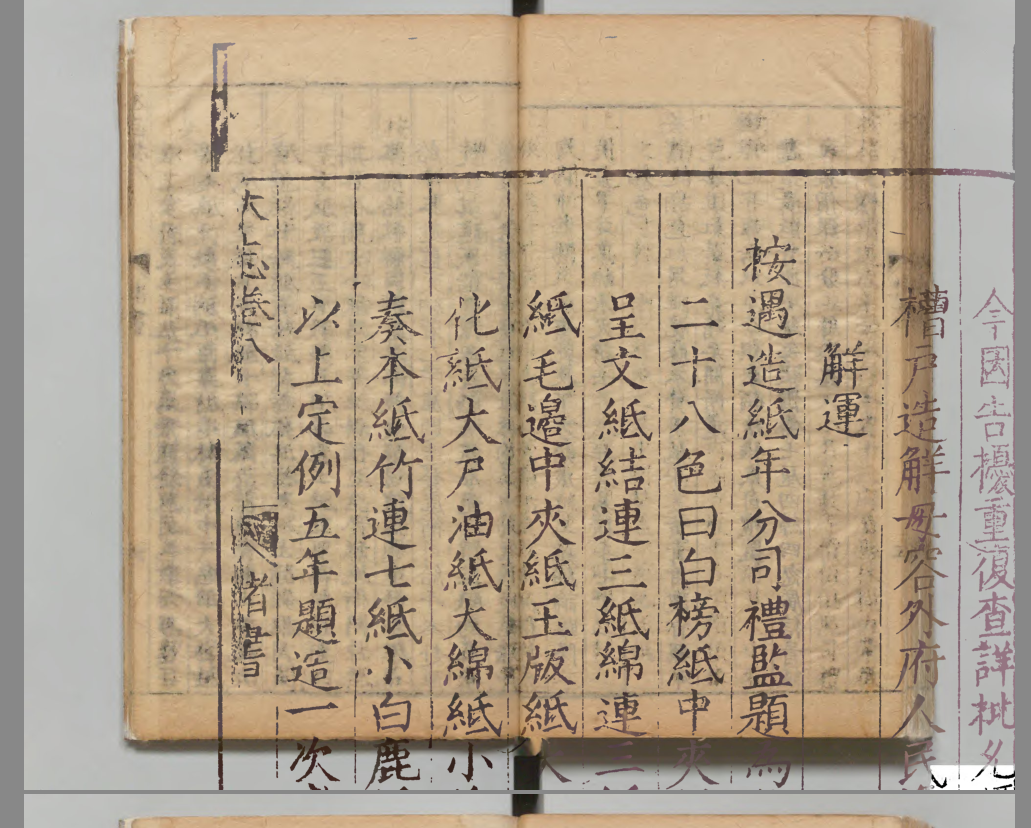 今因告擾重復查詳批
槽戸造解毋容外府人民
解運
按遇造紙年分司禮監題為
二十八色曰白榜紙中夾
呈文紙結連三紙綿連三
紙毛邊中夾紙玉版紙
化紙大戸油紙大綿紙小
奏本紙竹連七紙小白鹿
以上定例五年題造一次
志卷八
者書